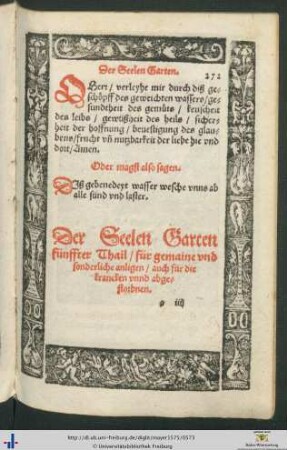 Der Seelen Garten.
272
O Herr / verleyhe mir durch diß ge-
schöpff des geweichten wassers / ge-
sundtheit des gemüts / keuscheit
des leibs / gewißheit des heils / sicher-
heit der hoffnung / beuestigung des glau-
bens / frucht vñ nutzbarkeit der liebe hie vnd
dort / Amen.
Oder magst also sagen.
Diß gebenedeyt wasser wesche vnns ab
alle sünd vnd laster.
Der Seelen Garten
fünffter Thail / für gemaine vnd
sonderliche anligen / auch für die
krancken vnnd abge-
storbnen.
iij
http://dl.ub.uni-freiburg.de/diglit/mayer1575/0573
© Universitätsbibliothek Freiburg